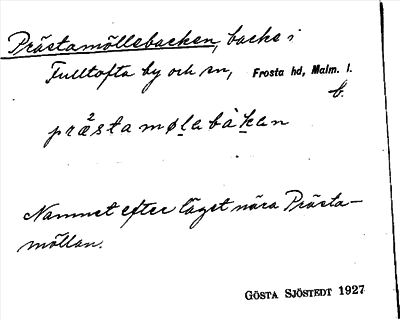 Prästamöllebacken, backe i
Fulltofta by och sn, Frosta hd, Malm. l.
b.
præ²stamølabàkan
Namnet efter läget nära Prästa-
möllan.
GÖSTA SJÖSTEDT 1927